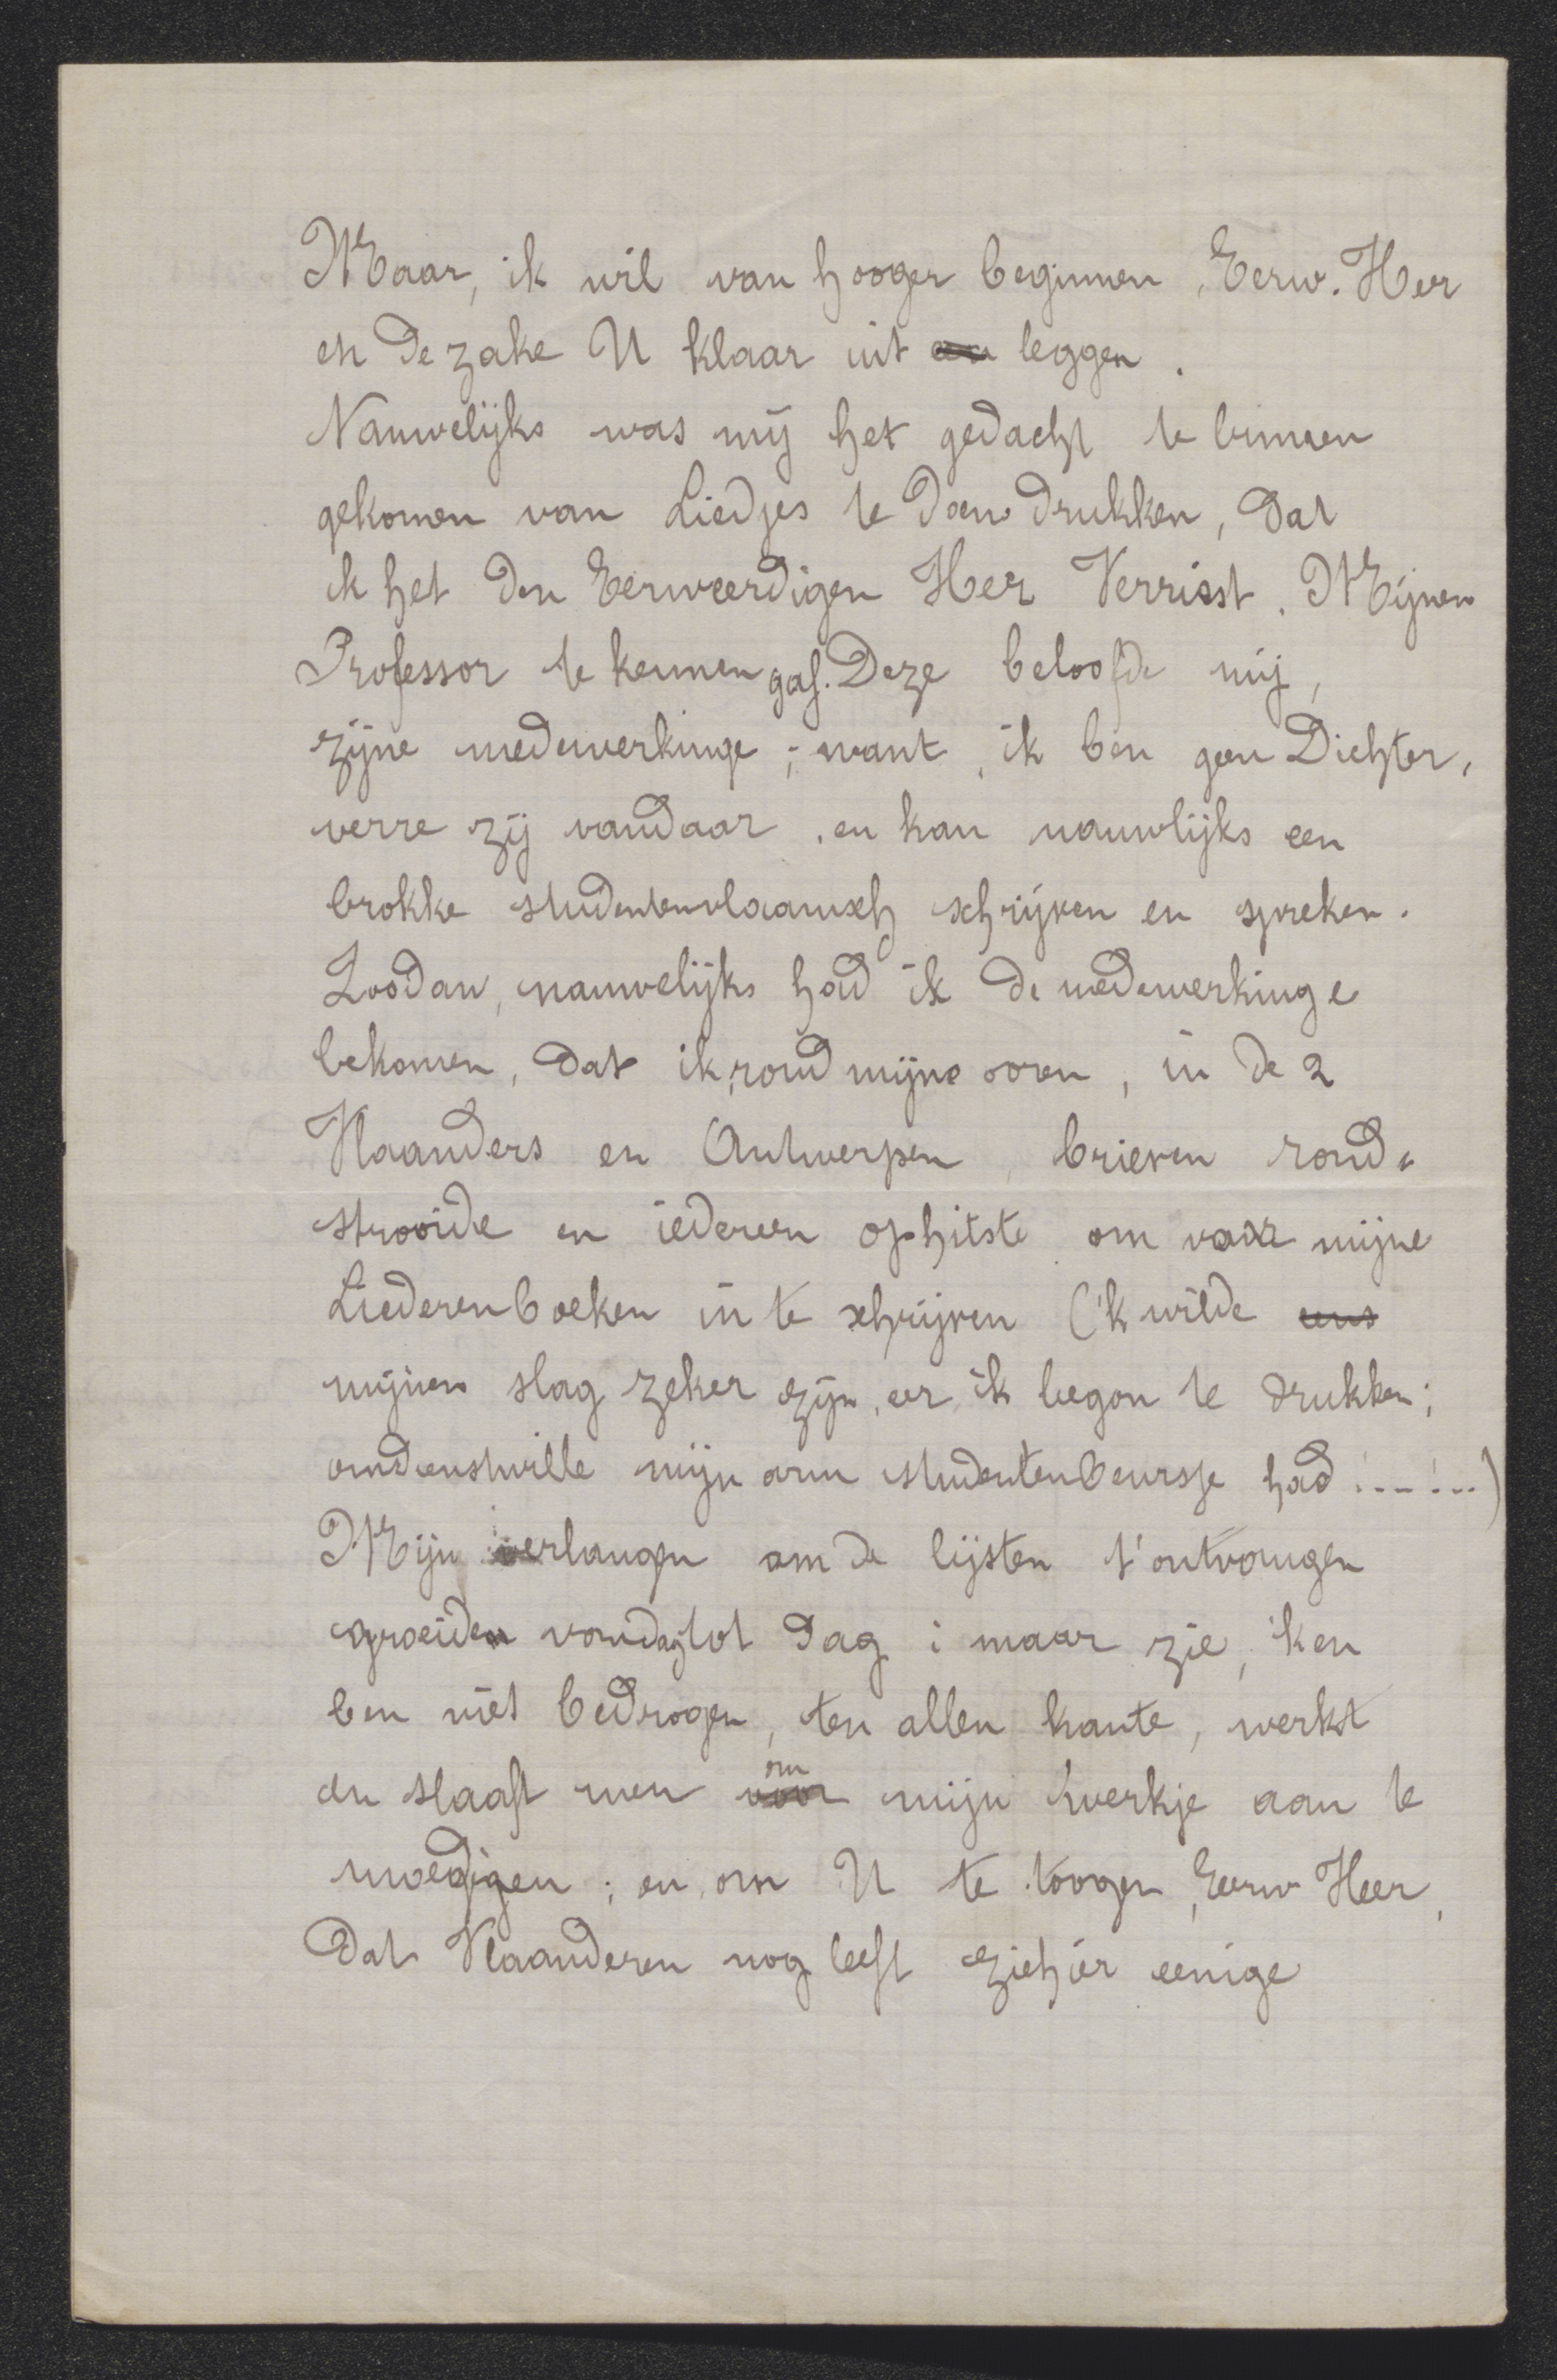 Maar, ik wil van hooger beginnen, Eerw. Heer
en de zake U klaar uit leggen.
Nauwelijks was mij het gedacht te binnen
gekomen van Liedjes te doen drukken, dat
ik het den Eerweerdigen Heer Verriest. Mijnen
Professor te kennen gaf. Deze beloofde mij,
zijne medewerkinge; want, ik ben geen Dichter,
verre zij vandaar, en kan nauwlijks een
brokke studentenvlaamsch schrijven en spreken.
Zoodan, nauwelijks had ik de medewerkinge
bekomen, dat ik, rond mijne ooren, in de 2
Vlaanders en Antwerpen, brieven rond-
strooide en iedereen ophitste om voor mijne
Liederenboeken in te schrijven ('k wilde eens
mijnen slag zeker zijn, eer ik begon te drukken;
omdienswille mijn arm studentenbeursje had !...!...)
Mijn verlangen om de lijsten t'ontvangen
groeiden van dag tot dag; maar zie, 'k en
ben niet bedrogen, ten allen kante, werkt
en slaaft men om mijn werkje aan te
moedigen; en, om U te toogen, Eerw Heer,
dat Vlaanderen nog leeft ziehier eenige